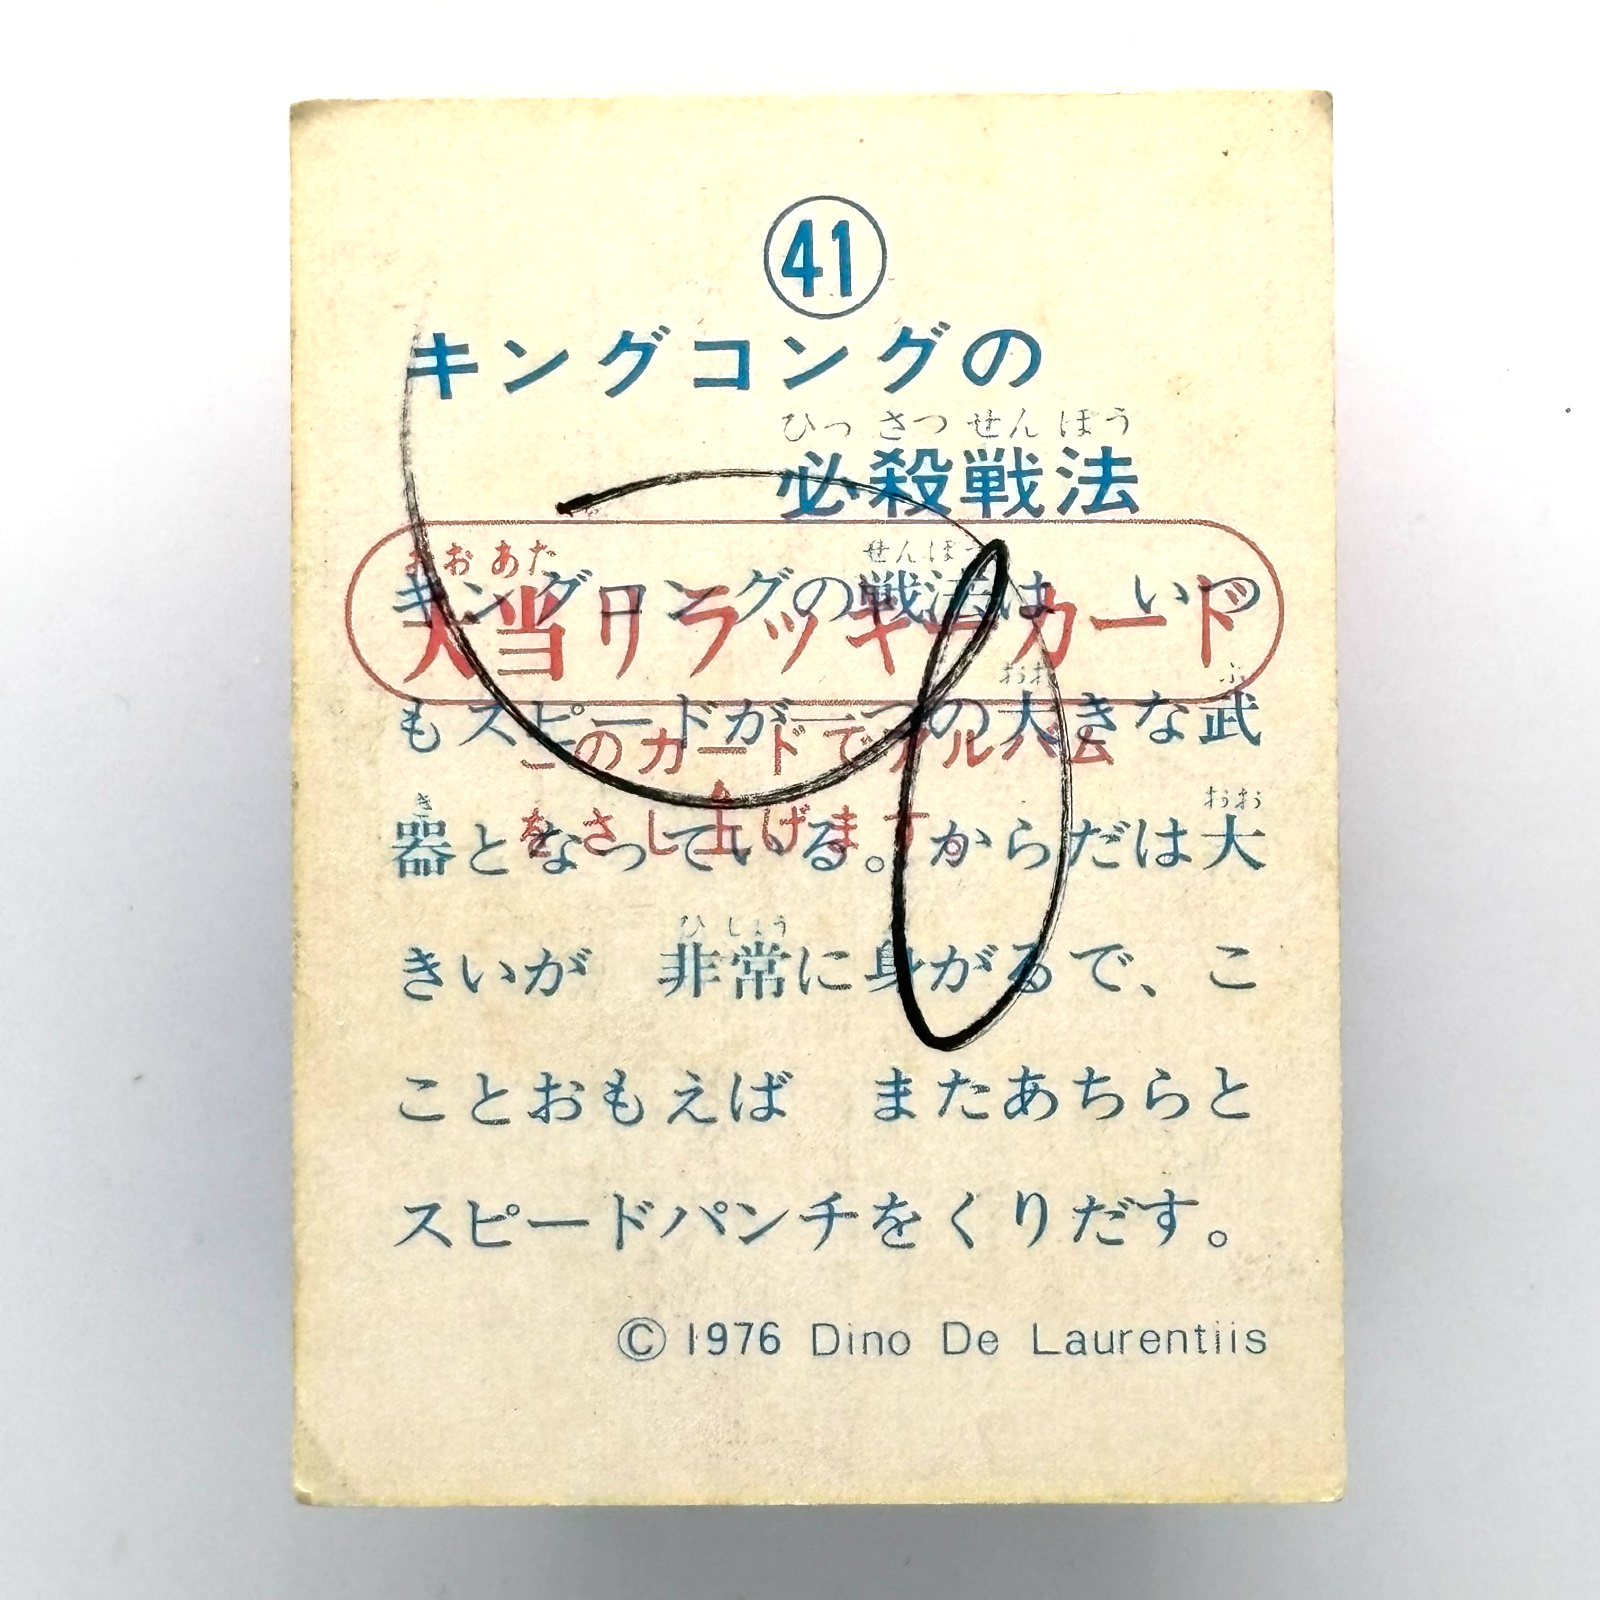 41
キングコングの
ひっさつせんぽう
必殺戦法
せんぽう
キングコングの戦法は　いつ
おお　ぶ
もスピードが一つの大きな武
き　おお
器となっている。からだは大
ひじょう
きいが　非常に身がるで、こ
ことおもえば　またあちらと
スピードパンチをくりだす。
© 1976 Dino De Laurentiis
おおあた
大当りラッキーカード
このカードでアルバム
をさし上げます。